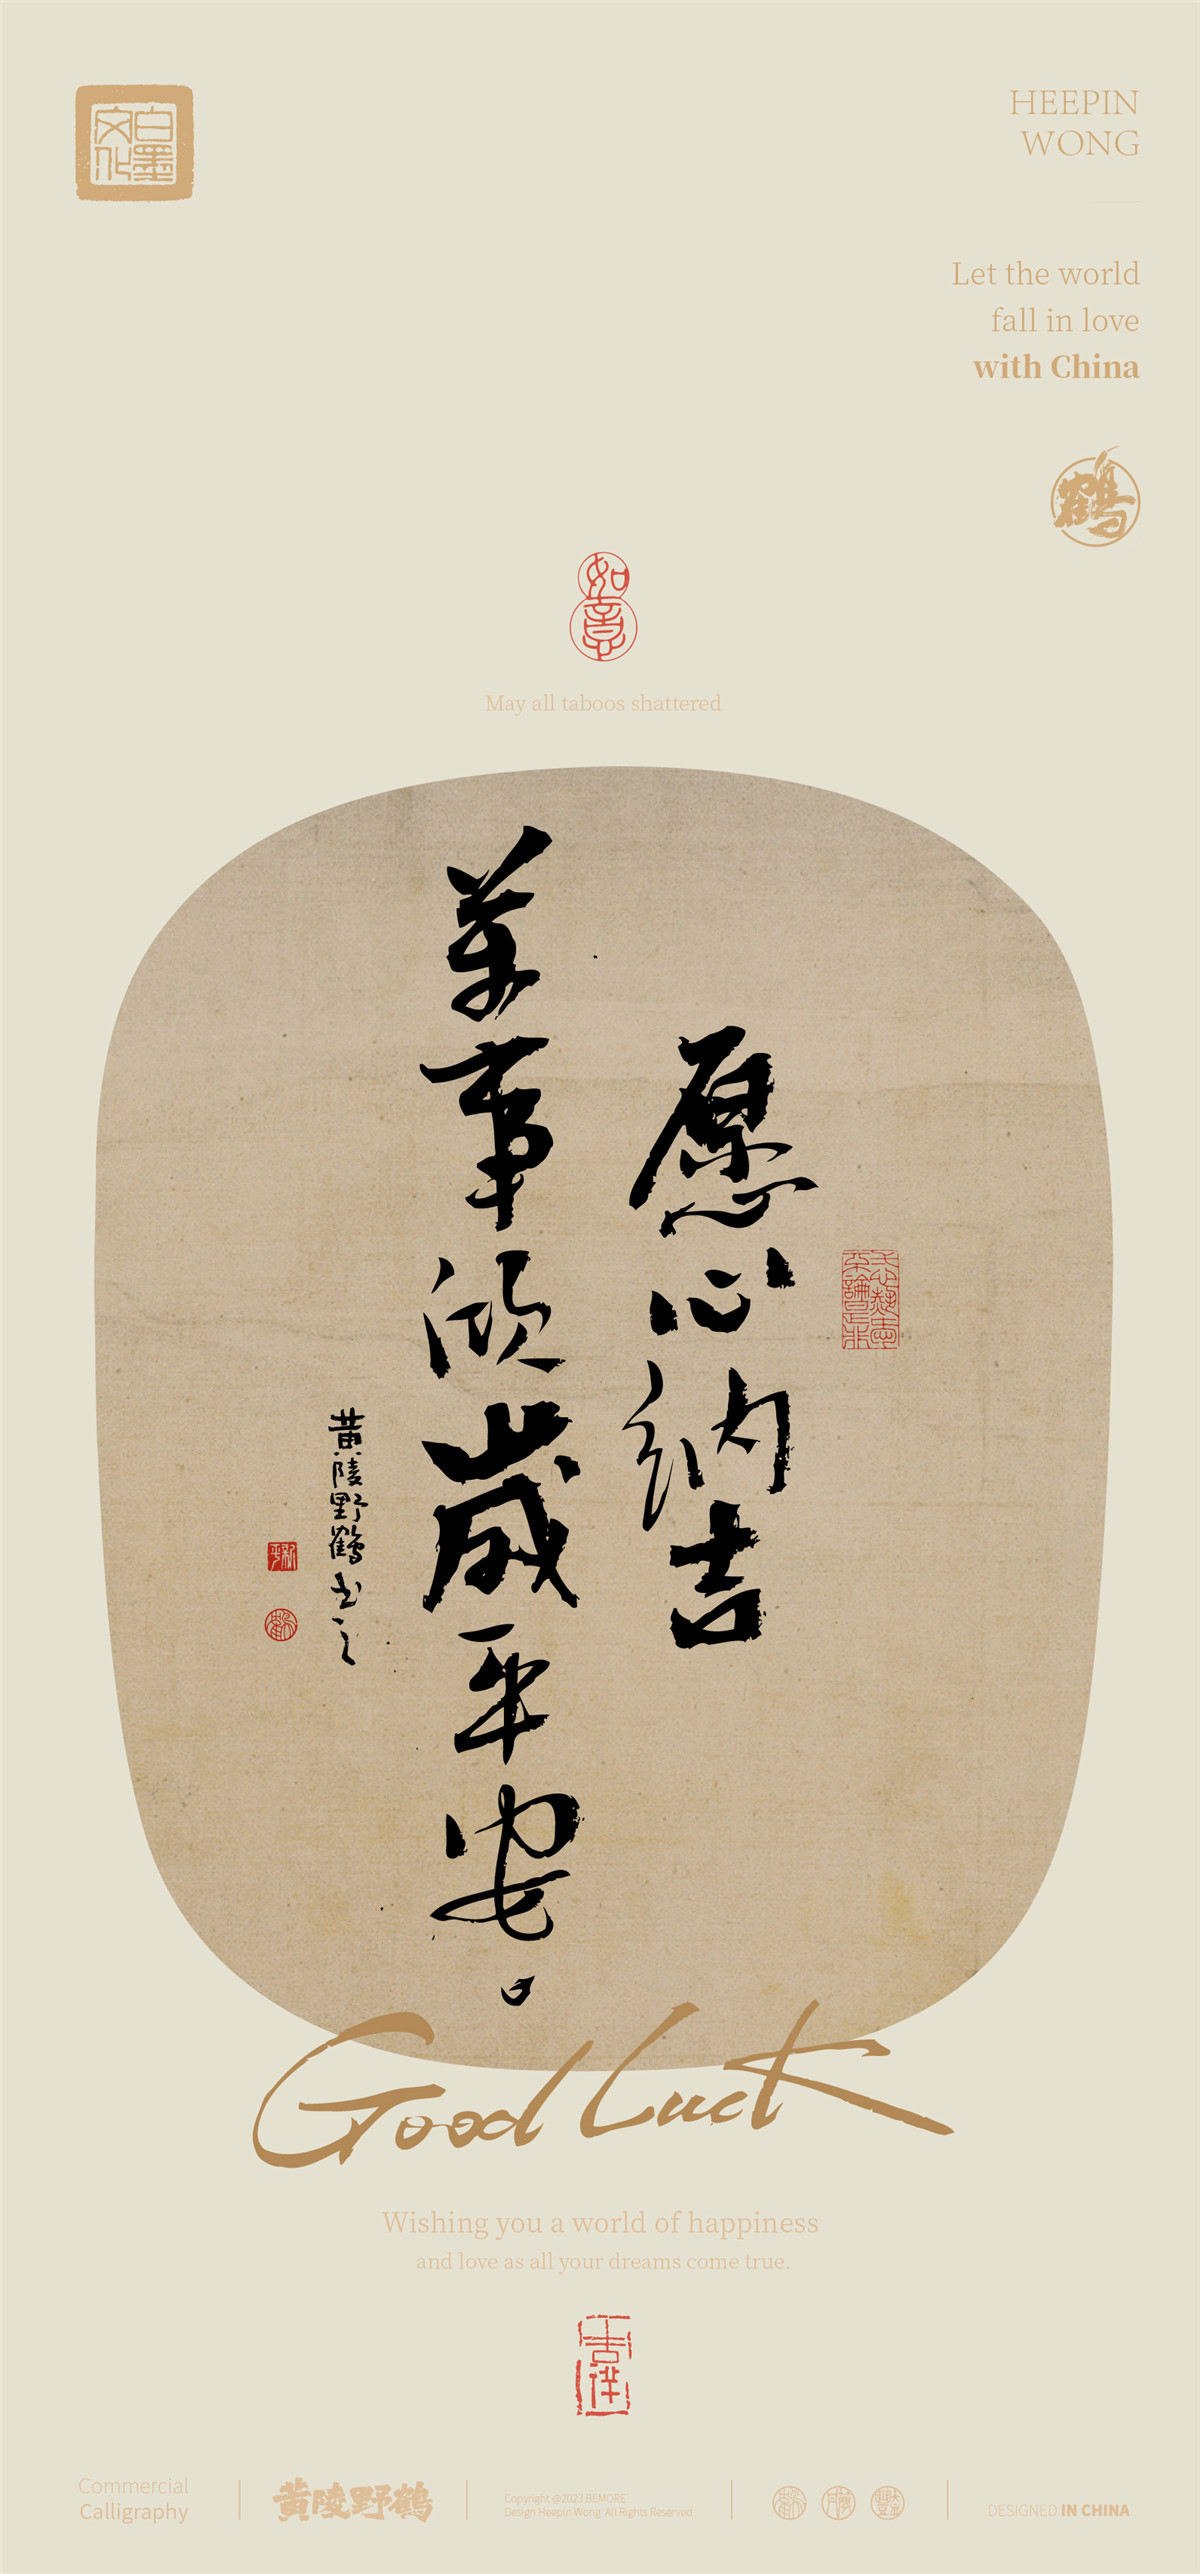 白墨
文化
HEEPIN
WONG
Let the world
fall in love
with China
鹤
如意
May all taboos shattered
愿心纳吉
万事顺岁平安
黄陵野鹤书之
Good Luck
Wishing you a world of happiness
and love as all your dreams come true.
吉祥
Commercial
Calligraphy
黄陵野鹤
Copyright @2023 BEMORE
Design Heepin Wong All Rights Reserved
DESIGNED IN CHINA